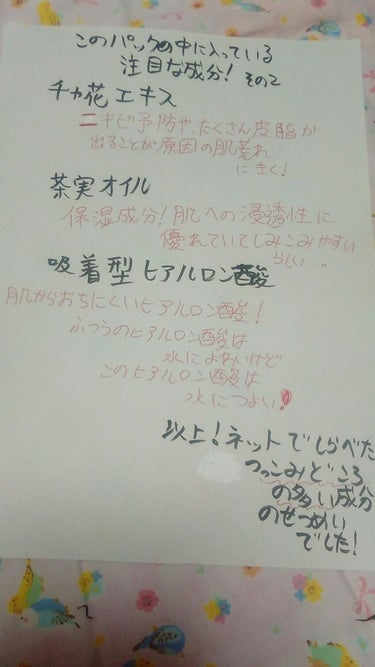 このパックの中に入っている
注目な成分! その2
チャ花エキス
ニキビ予防や、たくさん皮脂が
出ることが原因の肌荒れ
にきく!
茶実オイル
保湿成分!肌への浸透性に
優れていてしみこみやすい
らしい…。
吸着型ヒアルロン酸
肌からおちにくいヒアルロン酸!
ふつうのヒアルロン酸は
水によわいけど
このヒアルロン酸は
水につよい!
以上!ネットでしらべた
つっこみどころ
の多い成分
のせつめい
でした!